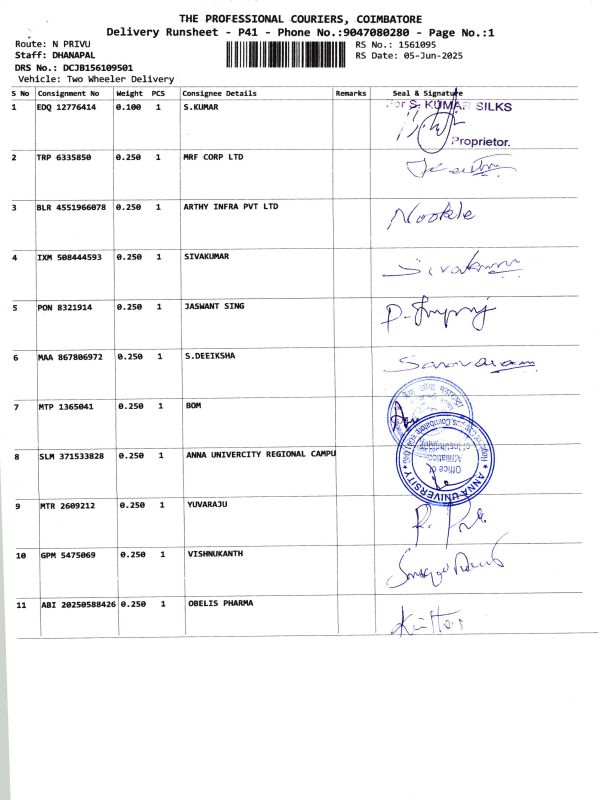 THE PROFESSIONAL COURIERS, COIMBATORE
Delivery Runsheet - P41 - Phone No.:9047080280 - Page No.:1
Route: N PRIVU
RS No.: 1561095
Staff: DHANAPAL
RS Date: 05-Jun-2025
DRS No.: DCJB156109501
Vehicle: Two Wheeler Delivery
S No Consignment No Weight PCS Consignee Details Remarks Seal & Signature
1 EDQ 12776414 0.100 1 S.KUMAR
For S. KUMAR SILKS
Proprietor.
2 TRP 6335850 0.250 1 MRF CORP LTD
3 BLR 4551966078 0.250 1 ARTHY INFRA PVT LTD
4 IXM 508444593 0.250 1 SIVAKUMAR
Sivakumar
5 PON 8321914 0.250 1 JASWANT SING
6 MAA 867806972 0.250 1 S.DEEIKSHA
7 MTP 1365041 0.250 1 BOM
8 SLM 371533828 0.250 1 ANNA UNIVERCITY REGIONAL CAMPU
Office of
Affiliation
ANNA UNIVERSITY
9 MTR 2609212 0.250 1 YUVARAJU
10 GPM 5475069 0.250 1 VISHNUKANTH
11 ABI 20250588426 0.250 1 OBELIS PHARMA